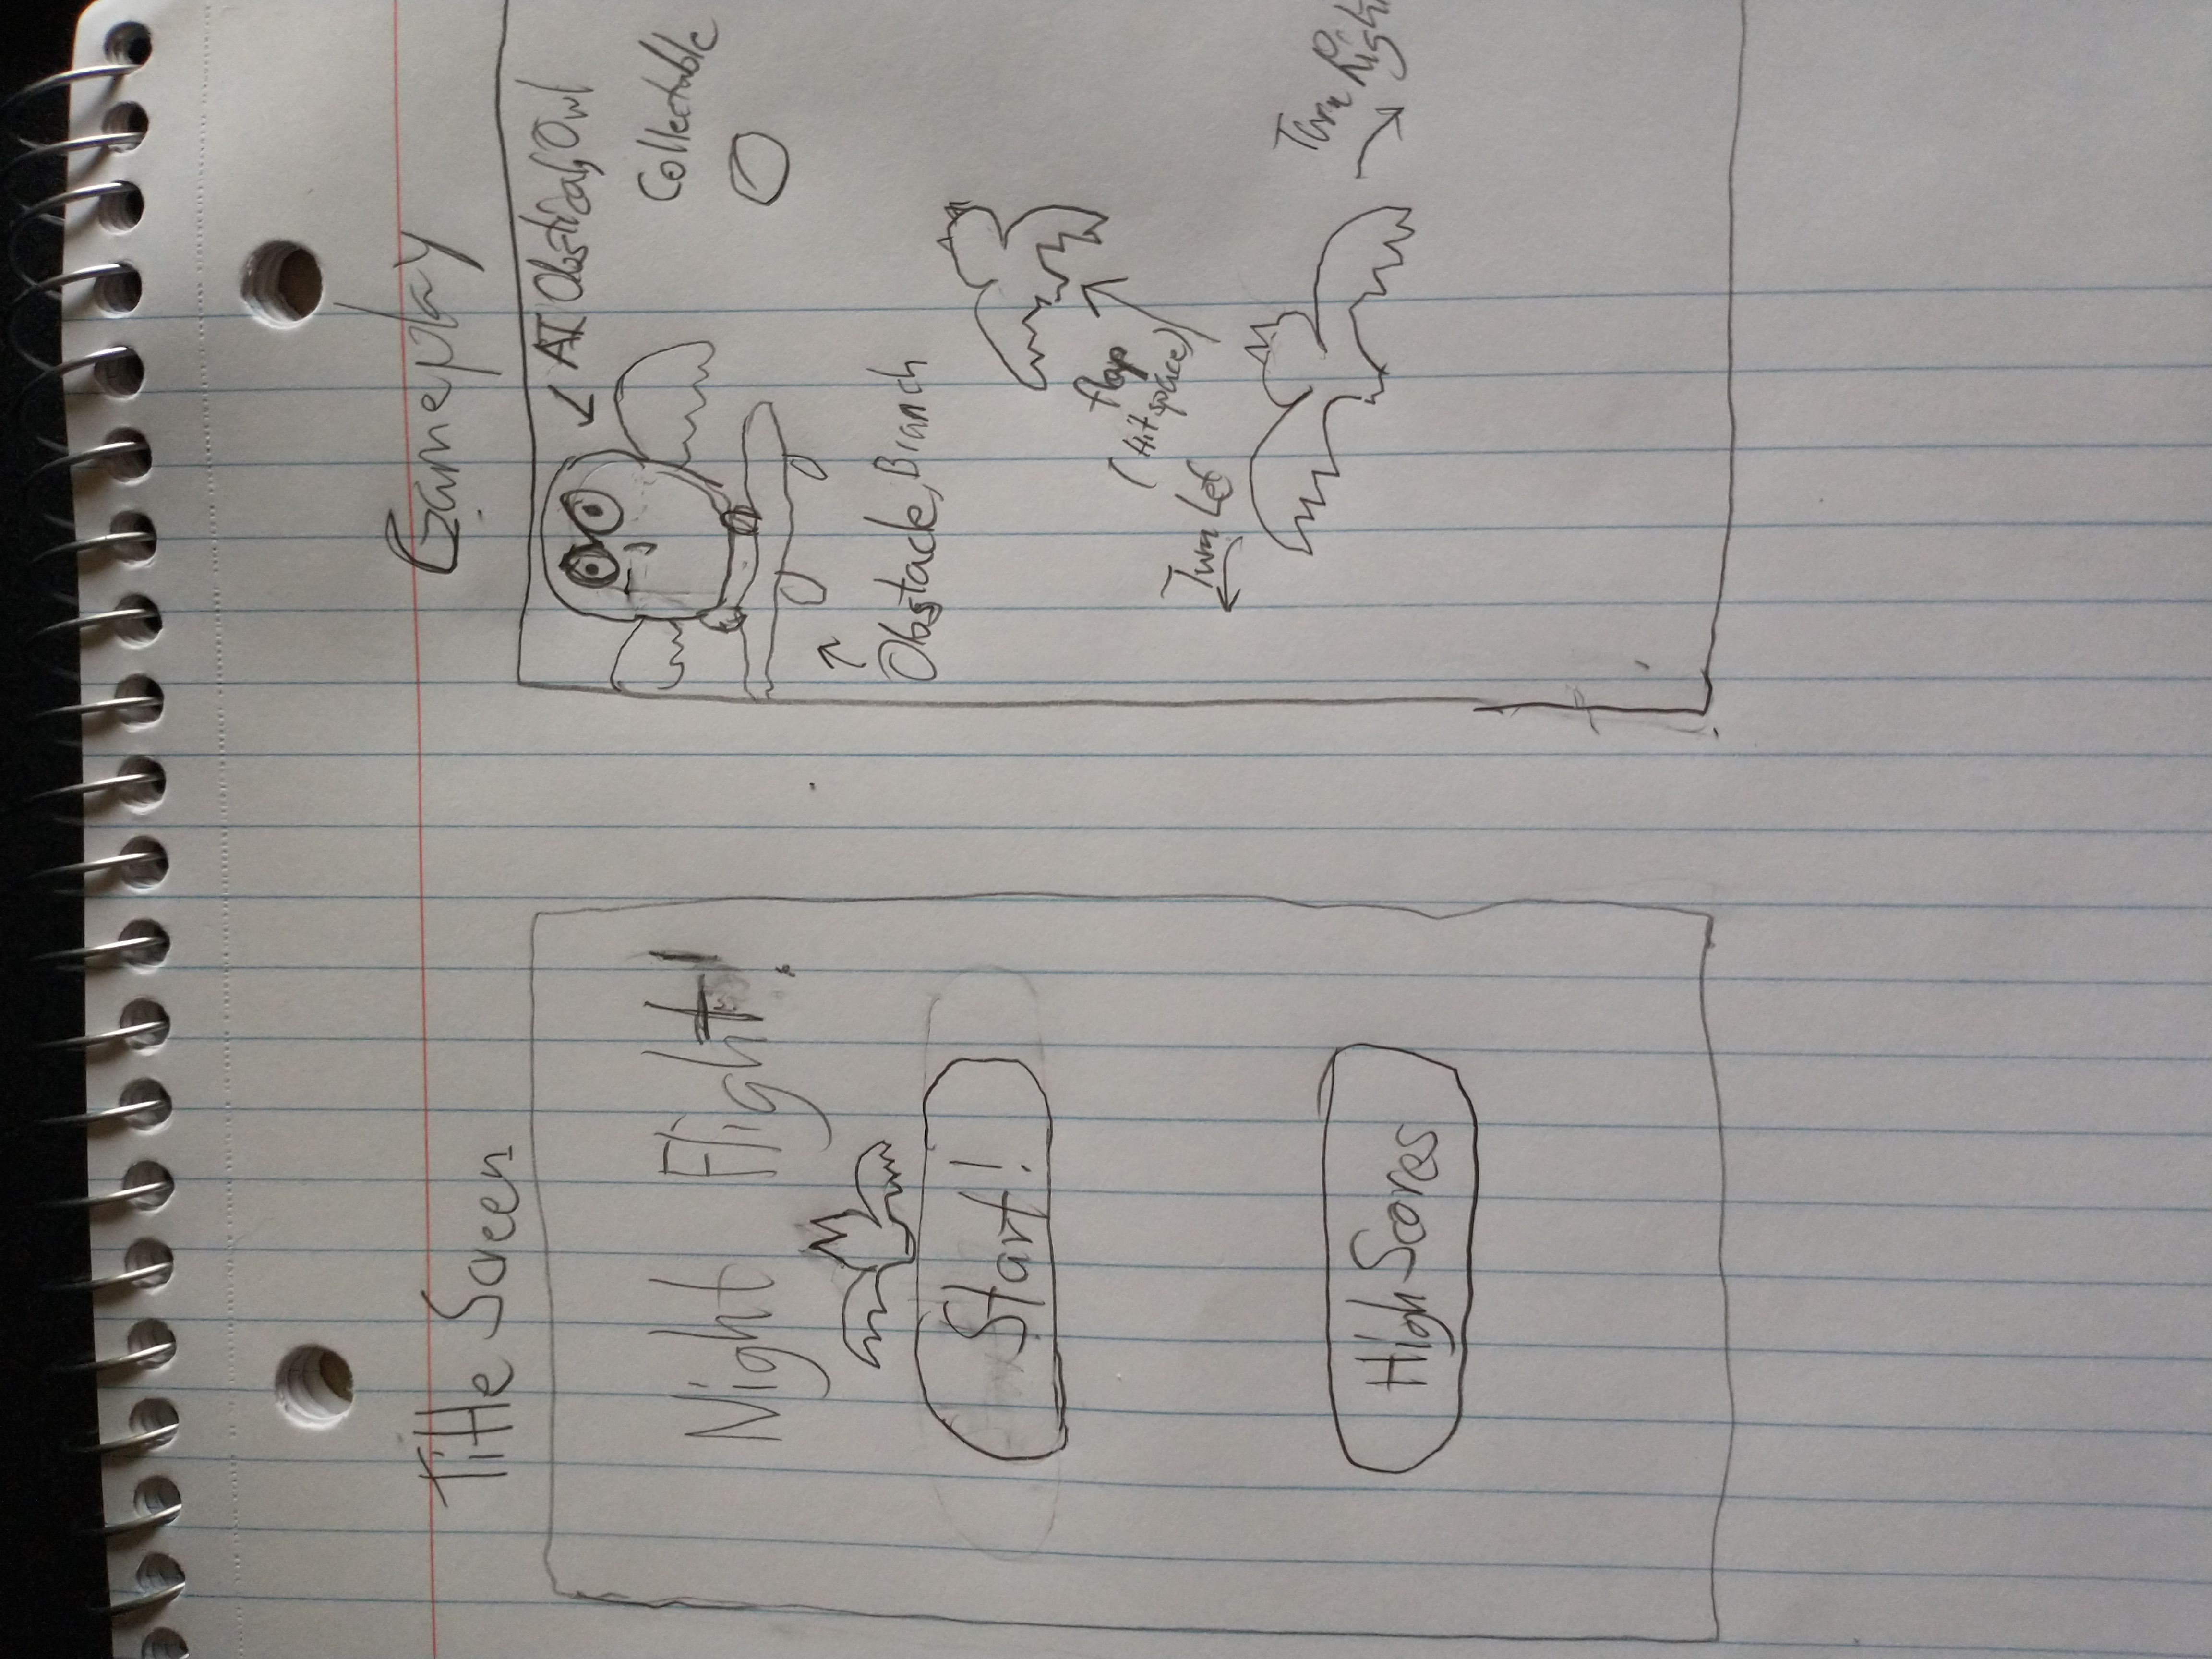 Title Screen
Night Flight!
Start!
High Scores
Gameplay
AI Obstical, Owl
Collectable
Obstacle, Branch
flap
(Hit space)
Turn Lef
Turn Righ